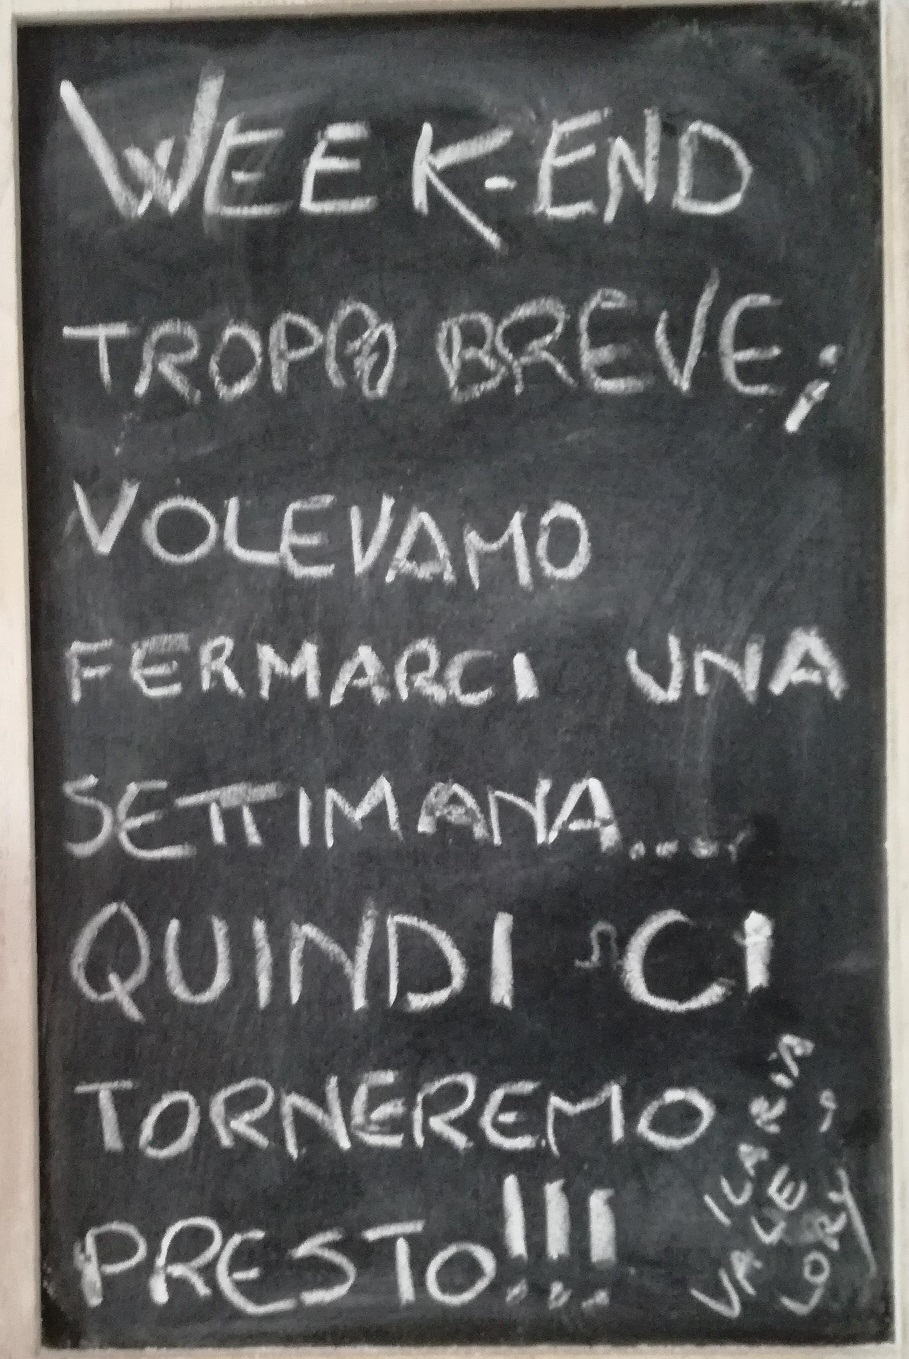 WEEK-END
TROPPO BREVE;
VOLEVAMO
FERMARCI UNA
SETTIMANA.....
QUINDI CI
TORNEREMO
PRESTO!!!
ILARIA,
VALE
LORY